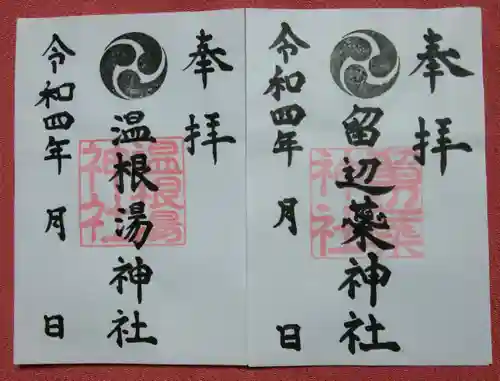 奉拝
留辺蘂神社
令和四年 月 日
奉拝
温根湯神社
令和四年 月 日
温根湯
神社
神社